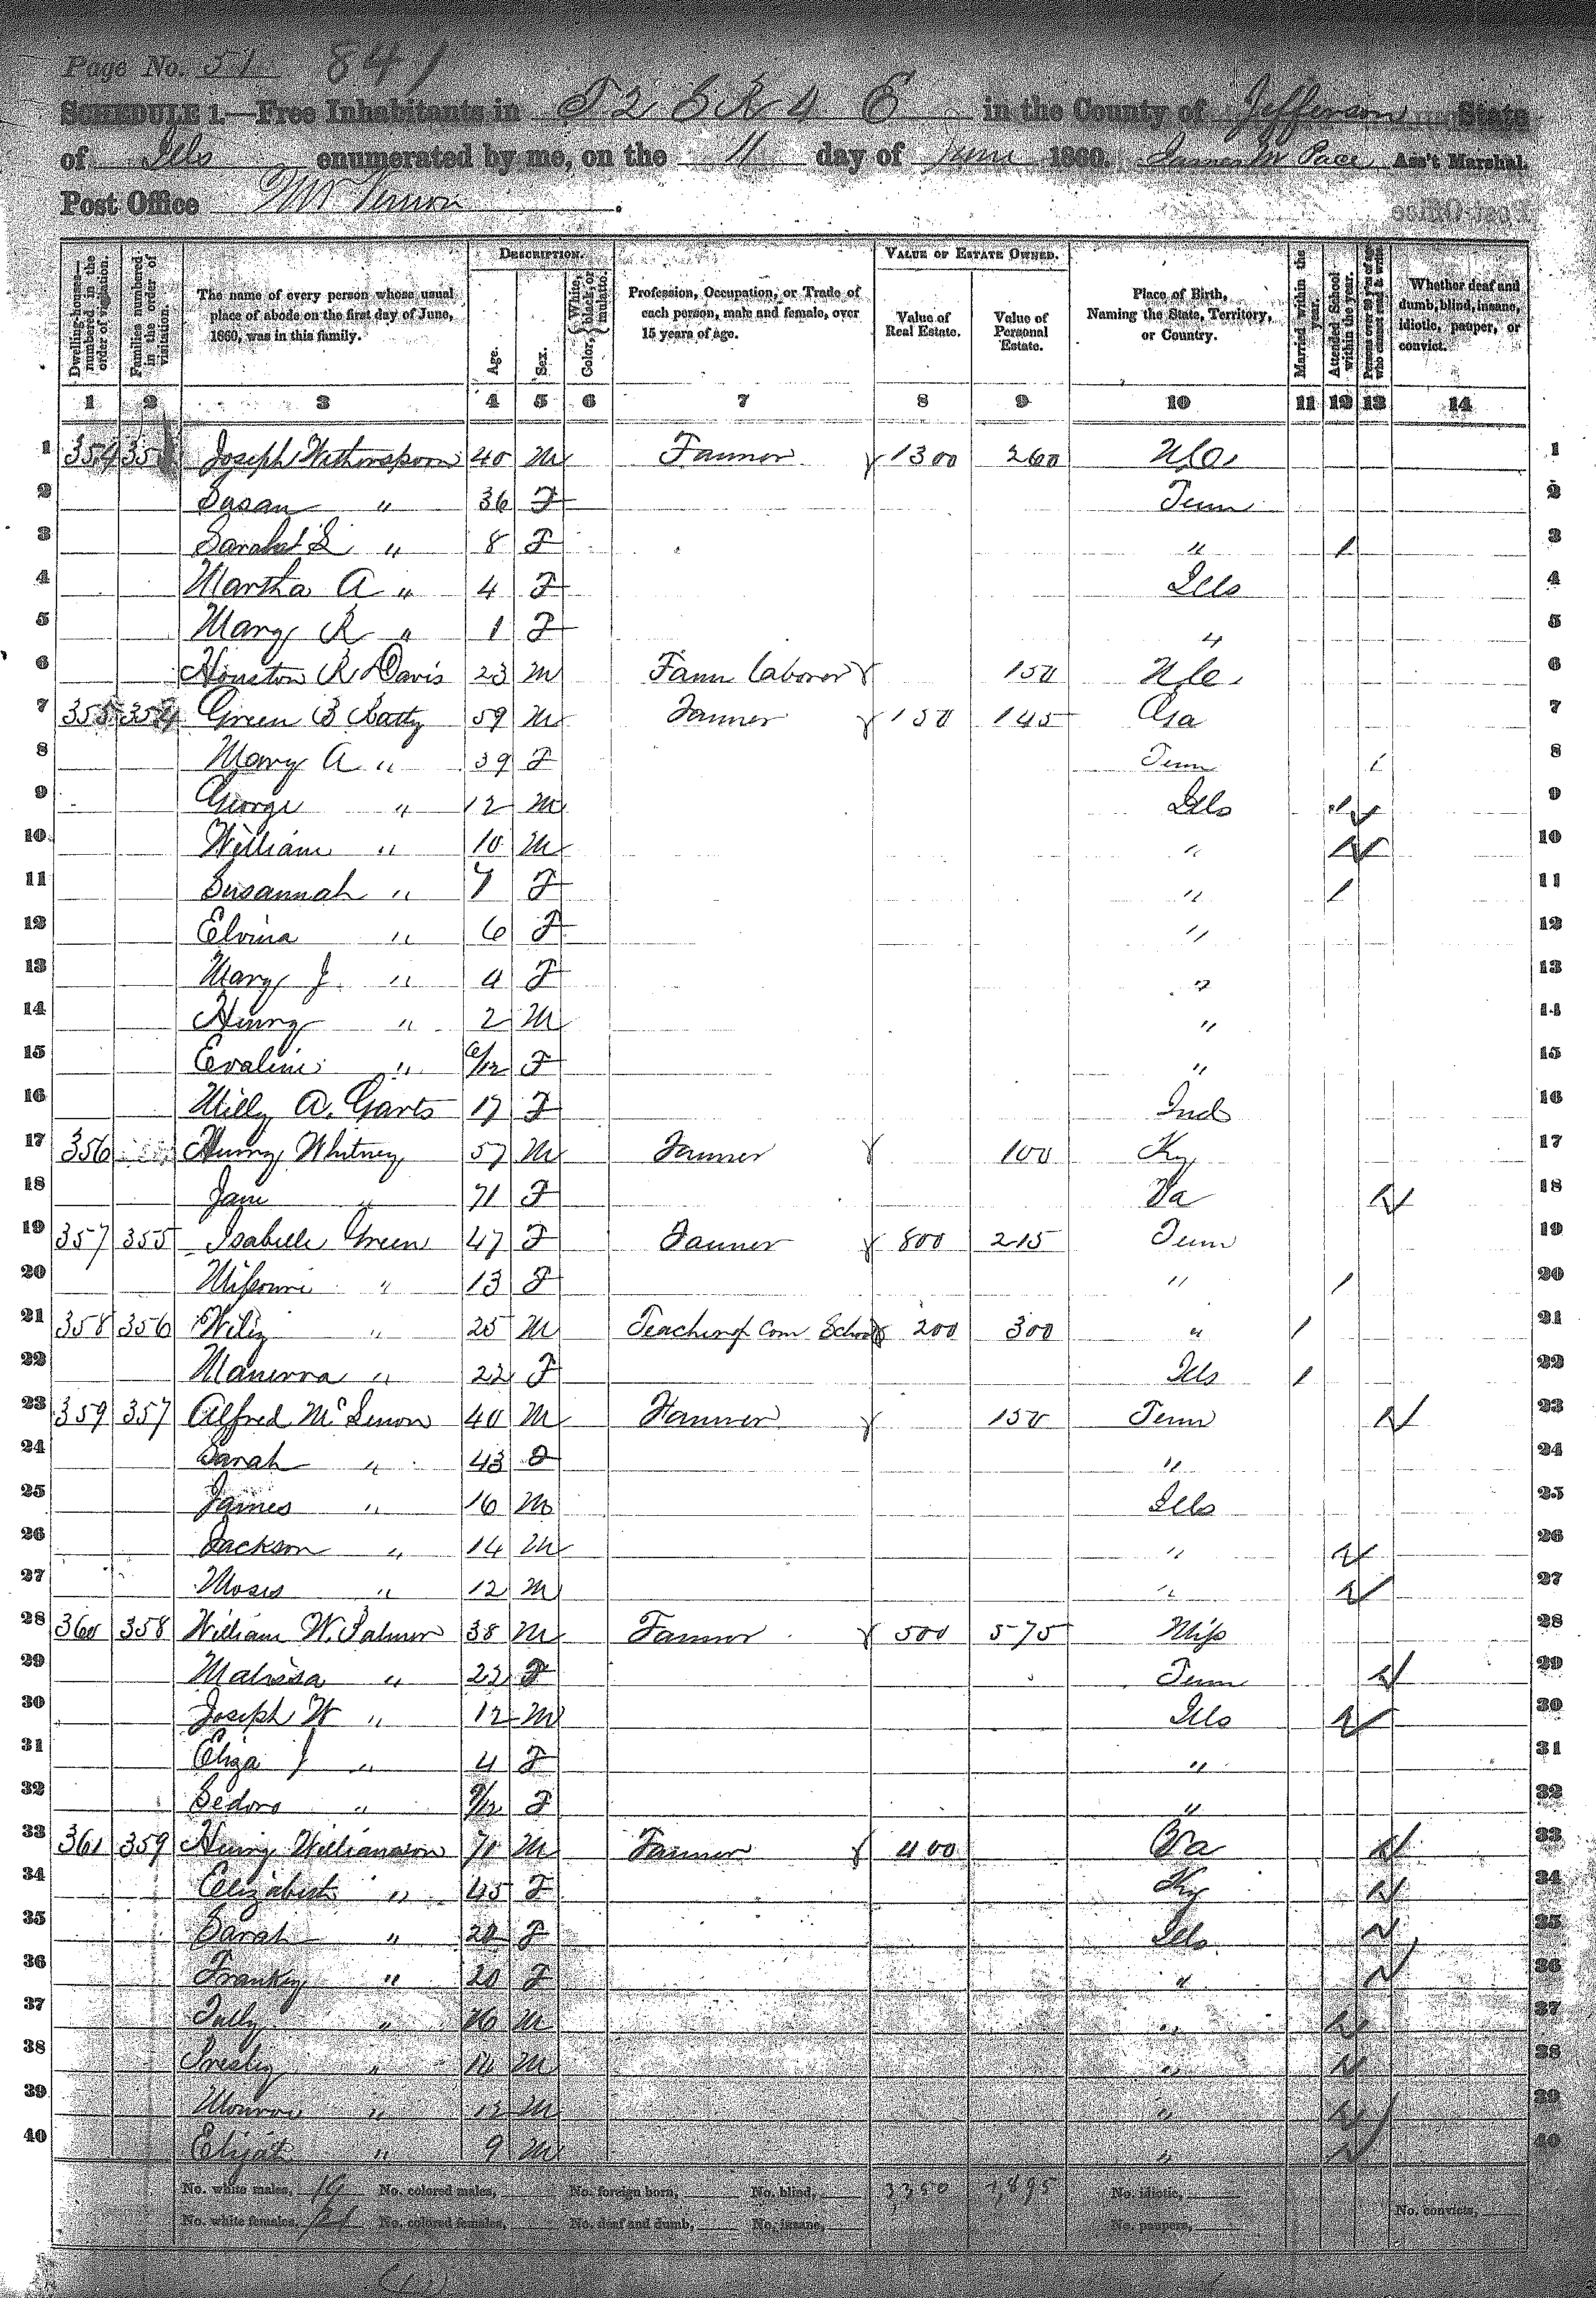 Page No. 51 841
SCHEDULE 1.—Free Inhabitants in T 2 S R 4 E in the County of Jefferson State
of Ills enumerated by me, on the 11 day of June 1860. James M Pace Ass't Marshal.
Post Office Mt Vernon.
Dwelling-houses—numbered in the order of visitation. Families numbered in the order of visitation. The name of every person whose usual place of abode on the first day of June, 1860, was in this family. DESCRIPTION. Age. Sex. Color, {White, black, or mulatto. Profession, Occupation, or Trade of each person, male and female, over 15 years of age. VALUE OF ESTATE OWNED. Value of Real Estate. Value of Personal Estate. Place of Birth, Naming the State, Territory, or Country. Married within the year. Attended School within the year. Persons over 20 y'rs of age who cannot read & write. Whether deaf and dumb, blind, insane, idiotic, pauper, or convict.
1 2 3 4 5 6 7 8 9 10 11 12 13 14
1 354 Joseph Witherspoon 40 M Farmer 1300 260 N.C. 1
2 Susan " 36 F Tenn 2
3 Sarah " 8 F " 1 3
4 Martha A " 4 F Ills 4
5 Mary R " 1 F " 5
6 Houston R Davis 23 M Farm Laborer 150 N.C. 6
7 355 354 Green B 59 M Farmer 150 145 Ga 7
8 Mary A " 39 F Tenn 1 8
9 George " 12 M Ills 1 9
10 William " 10 M " 1 10
11 Susannah " 7 F " 1 11
12 Elvina " 6 F " 12
13 Mary J " 4 F " 13
14 Henry " 2 M " 14
15 Evaline " 6/12 F " 15
16 Milly A. 17 F Ind 16
17 356 Henry Whitney 57 M Farmer 100 Ky 17
18 Jane " 71 F Va 1 18
19 357 355 Isabelle Green 47 F Farmer 800 215 Tenn 19
20 Missouri " 13 F " 1 20
21 358 356 Wiley " 25 M Teaching Com School 200 300 " 1 21
22 Manerva " 22 F Ills 1 22
23 359 357 Alfred 40 M Farmer 150 Tenn 1 23
24 Sarah " 43 F " 24
25 James " 16 M Ills 25
26 Jackson " 14 M " 1 26
27 Moses " 12 M " 1 27
28 360 358 William W. Palmer 38 M Farmer 500 575 Miss 28
29 Malissa " 22 F Tenn 1 29
30 Joseph W " 12 M Ills 1 30
31 Eliza J " 4 F " 31
32 Sedora " 9/12 F " 32
33 361 359 Henry Williamson 71 M Farmer 400 Va 1 33
34 Elizabeth " 45 F Ky 1 34
35 Sarah " F Ills 1 35
36 Franky " 20 F " 1 36
37 Tully " 16 M " 1 37
38 Presley " 14 M " 1 38
39 Monroe " 12 M " 1 39
40 Elijah " 9 M " 1 40
No. white males, 19 No. colored males, No. foreign born, No. blind, 3350 1,895 No. idiotic,
No. white females, 21 No. colored females, No. deaf and dumb, No. insane, No. paupers, No. convicts,